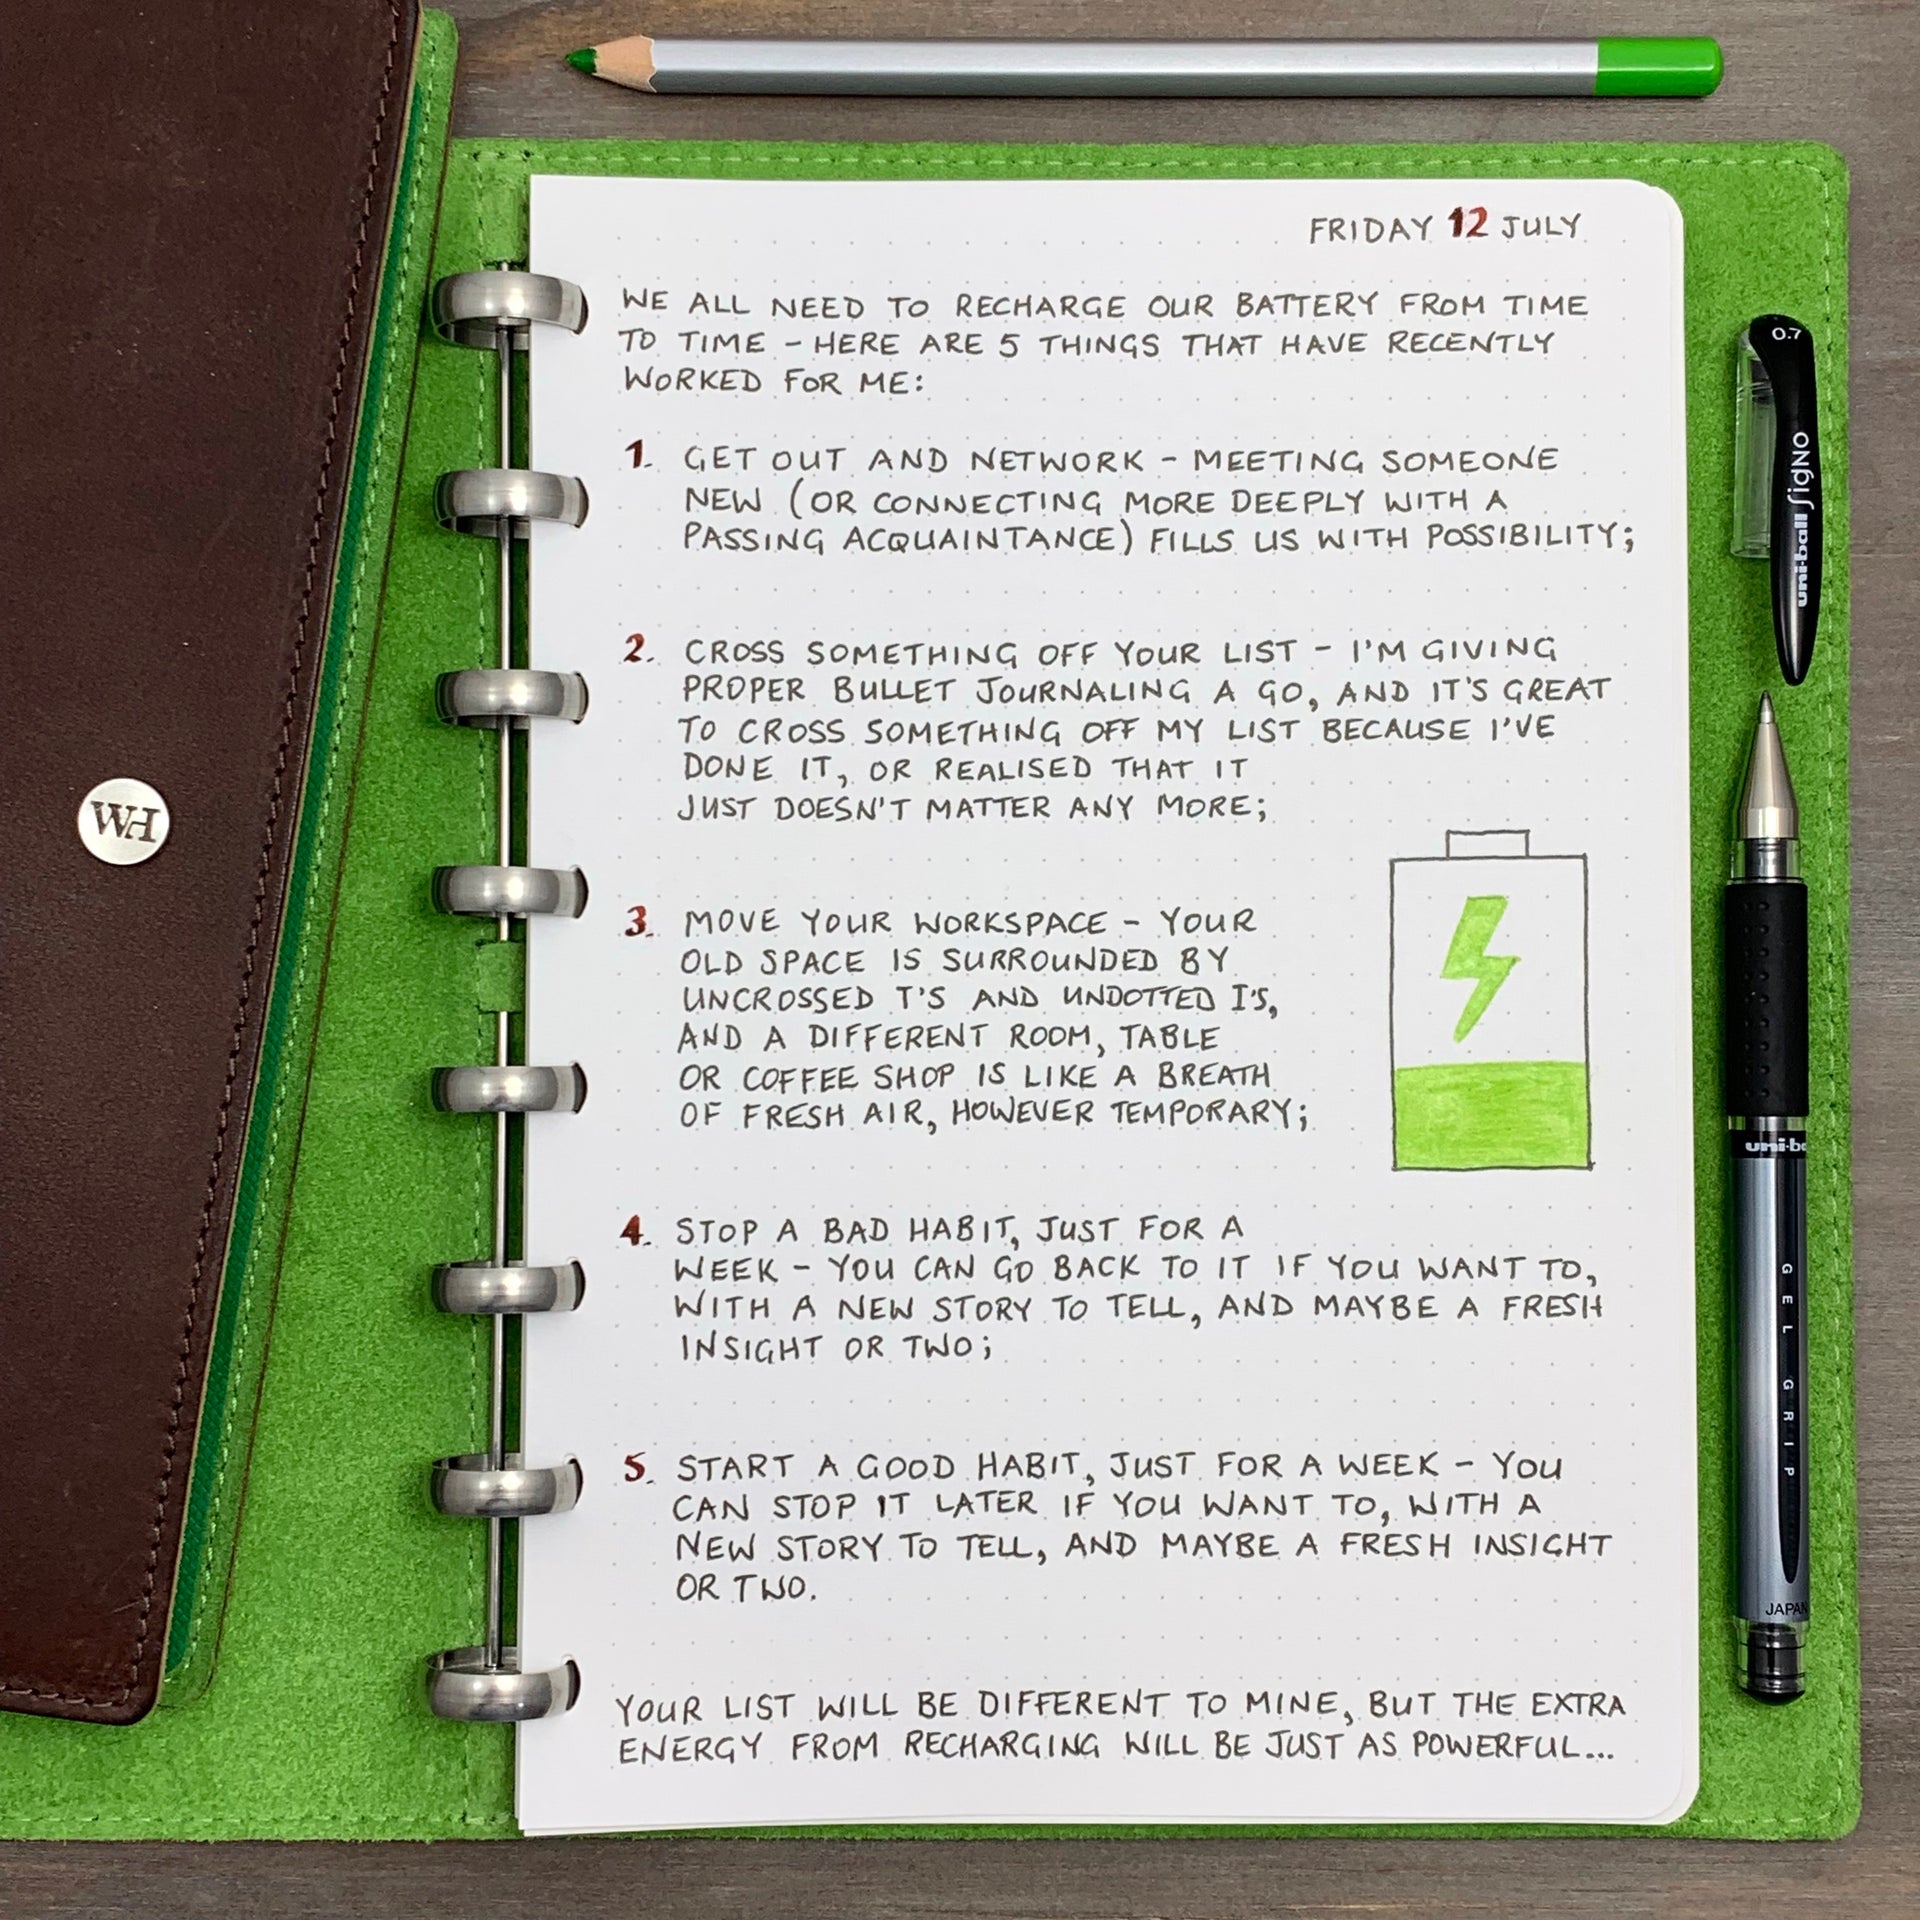 FRIDAY 12 JULY
WE ALL NEED TO RECHARGE OUR BATTERY FROM TIME
TO TIME - HERE ARE 5 THINGS THAT HAVE RECENTLY
WORKED FOR ME:
1. GET OUT AND NETWORK - MEETING SOMEONE
NEW (OR CONNECTING MORE DEEPLY WITH A
PASSING ACQUAINTANCE) FILLS US WITH POSSIBILITY;
2. CROSS SOMETHING OFF YOUR LIST - I'M GIVING
PROPER BULLET JOURNALING A GO, AND IT'S GREAT
TO CROSS SOMETHING OFF MY LIST BECAUSE I'VE
DONE IT, OR REALISED THAT IT
JUST DOESN'T MATTER ANY MORE;
3. MOVE YOUR WORKSPACE - YOUR
OLD SPACE IS SURROUNDED BY
UNCROSSED T'S AND UNDOTTED I'S,
AND A DIFFERENT ROOM, TABLE
OR COFFEE SHOP IS LIKE A BREATH
OF FRESH AIR, HOWEVER TEMPORARY;
4. STOP A BAD HABIT, JUST FOR A
WEEK - YOU CAN GO BACK TO IT IF YOU WANT TO,
WITH A NEW STORY TO TELL, AND MAYBE A FRESH
INSIGHT OR TWO;
5. START A GOOD HABIT, JUST FOR A WEEK - YOU
CAN STOP IT LATER IF YOU WANT TO, WITH A
NEW STORY TO TELL, AND MAYBE A FRESH INSIGHT
OR TWO.
YOUR LIST WILL BE DIFFERENT TO MINE, BUT THE EXTRA
ENERGY FROM RECHARGING WILL BE JUST AS POWERFUL...
WH
0.7
uni-ball SigNO
uni-ba
GEL GRIP
JAPAN